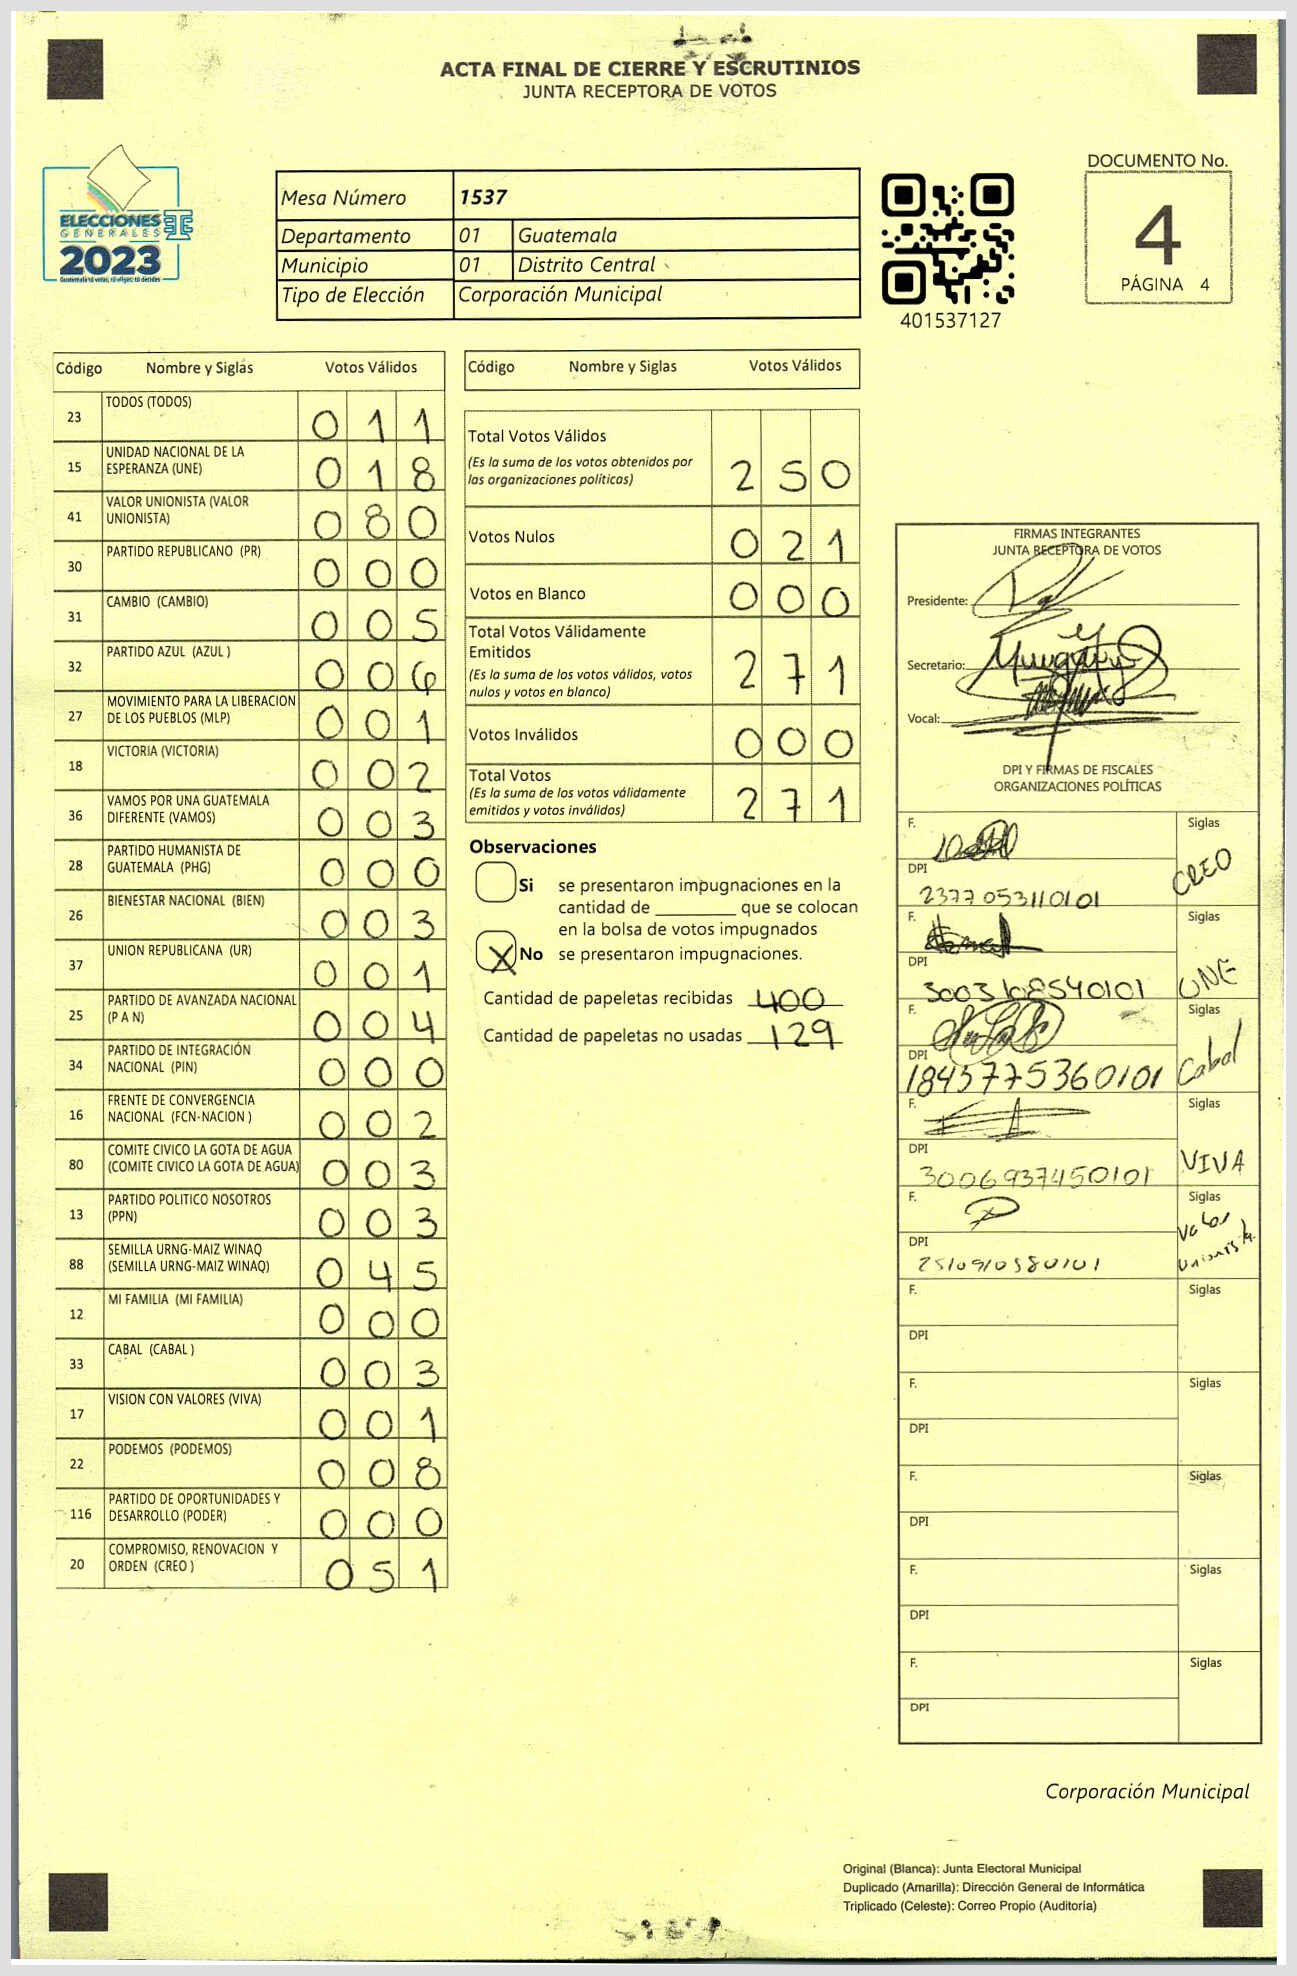 ACTA FINAL DE CIERRE Y ESCRUTINIOS
JUNTA RECEPTORA DE VOTOS
ELECCIONES
GENERALES
2023
Guatemala tú votas, tú eliges, tú decides
Mesa Número 1537
Departamento 01 Guatemala
Municipio 01 Distrito Central
Tipo de Elección Corporación Municipal
401537127
DOCUMENTO No.
4
PÁGINA 4
Código Nombre y Siglas Votos Válidos
23 TODOS (TODOS) 0 1 1
15 UNIDAD NACIONAL DE LA
ESPERANZA (UNE) 0 1 8
41 VALOR UNIONISTA (VALOR
UNIONISTA) 0 8 0
30 PARTIDO REPUBLICANO (PR) 0 0 0
31 CAMBIO (CAMBIO) 0 0 5
32 PARTIDO AZUL (AZUL ) 0 0 6
27 MOVIMIENTO PARA LA LIBERACION
DE LOS PUEBLOS (MLP) 0 0 1
18 VICTORIA (VICTORIA) 0 0 2
36 VAMOS POR UNA GUATEMALA
DIFERENTE (VAMOS) 0 0 3
28 PARTIDO HUMANISTA DE
GUATEMALA (PHG) 0 0 0
26 BIENESTAR NACIONAL (BIEN) 0 0 3
37 UNION REPUBLICANA (UR) 0 0 1
25 PARTIDO DE AVANZADA NACIONAL
(P A N) 0 0 4
34 PARTIDO DE INTEGRACIÓN
NACIONAL (PIN) 0 0 0
16 FRENTE DE CONVERGENCIA
NACIONAL (FCN-NACION ) 0 0 2
80 COMITE CIVICO LA GOTA DE AGUA
(COMITE CIVICO LA GOTA DE AGUA) 0 0 3
13 PARTIDO POLITICO NOSOTROS
(PPN) 0 0 3
88 SEMILLA URNG-MAIZ WINAQ
(SEMILLA URNG-MAIZ WINAQ) 0 4 5
12 MI FAMILIA (MI FAMILIA) 0 0 0
33 CABAL (CABAL ) 0 0 3
17 VISION CON VALORES (VIVA) 0 0 1
22 PODEMOS (PODEMOS) 0 0 8
116 PARTIDO DE OPORTUNIDADES Y
DESARROLLO (PODER) 0 0 0
20 COMPROMISO, RENOVACION Y
ORDEN (CREO ) 0 5 1
Código Nombre y Siglas Votos Válidos
Total Votos Válidos
(Es la suma de los votos obtenidos por
las organizaciones políticas) 2 5 0
Votos Nulos 0 2 1
Votos en Blanco 0 0 0
Total Votos Válidamente
Emitidos
(Es la suma de los votos válidos, votos
nulos y votos en blanco) 2 7 1
Votos Inválidos 0 0 0
Total Votos
(Es la suma de los votos válidamente
emitidos y votos inválidos) 2 7 1
Observaciones
Si se presentaron impugnaciones en la
cantidad de ________ que se colocan
en la bolsa de votos impugnados
X No se presentaron impugnaciones.
Cantidad de papeletas recibidas 400
Cantidad de papeletas no usadas 129
FIRMAS INTEGRANTES
JUNTA RECEPTORA DE VOTOS
Presidente:
Secretario:
Vocal:
DPI Y FIRMAS DE FISCALES
ORGANIZACIONES POLÍTICAS
F. Siglas
DPI CREO
2377 053110101
F. Siglas
DPI UNE
3003108540101
F. Siglas
DPI Cabal
1845775360101
F. Siglas
DPI VIVA
3006937450101
F. Siglas
Valor
DPI Unionista
F. Siglas
DPI
F. Siglas
DPI
F. Siglas
DPI
F. Siglas
DPI
F. Siglas
DPI
Corporación Municipal
Original (Blanca): Junta Electoral Municipal
Duplicado (Amarilla): Dirección General de Informática
Triplicado (Celeste): Correo Propio (Auditoría)